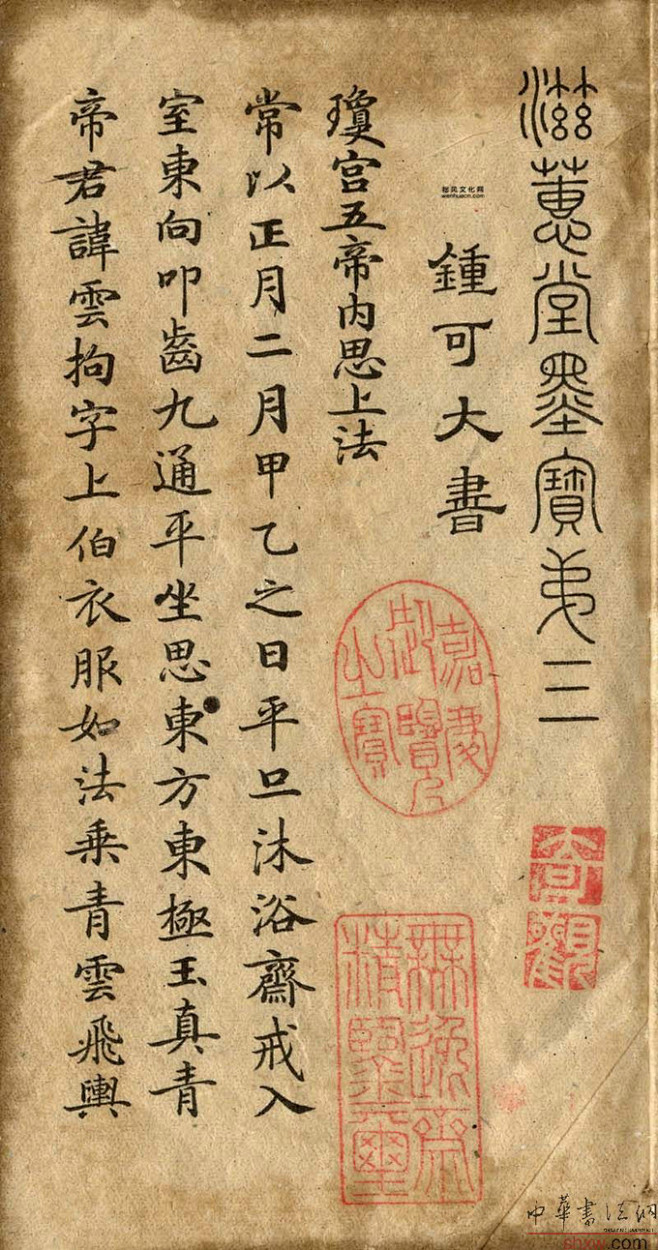 滋蕙堂墨寶弟三
鍾可大書
瓊宮五帝內思上法
常以正月二月甲乙之日平旦沐浴齋戒入
室東向叩齒九通平坐思東方東極玉真青
帝君諱雲拘字上伯衣服如法乘青雲飛輿
嘉慶御覽之寶
奇觀
無逸齋精鑒璽
中華書法網
shxw.com